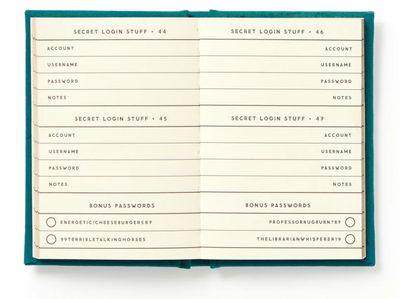 SECRET LOGIN STUFF • 44
ACCOUNT
USERNAME
PASSWORD
NOTES
SECRET LOGIN STUFF • 45
ACCOUNT
USERNAME
PASSWORD
NOTES
BONUS PASSWORDS
ENERGETIC!CHEESEBURGERS87
99TERRIBLETALKINGHORSES
SECRET LOGIN STUFF • 46
ACCOUNT
USERNAME
PASSWORD
NOTES
SECRET LOGIN STUFF • 49
ACCOUNT
USERNAME
PASSWORD
NOTES
BONUS PASSWORDS
PROFESSORRUGBURN789
THELIBRARIANWHISPERER19